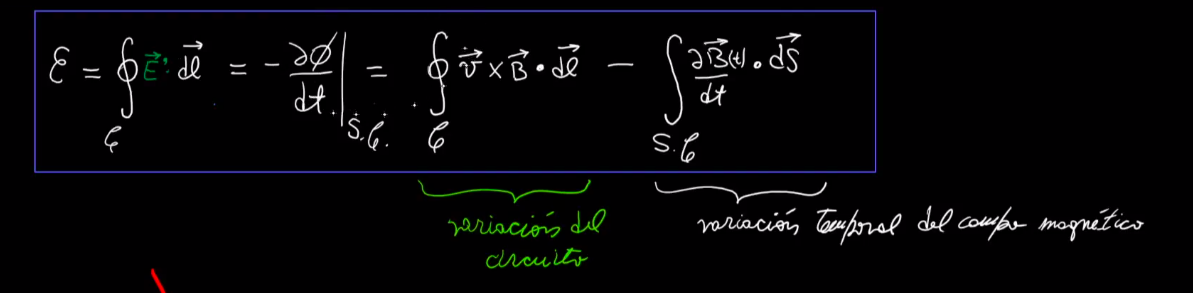 ℰ = ∮_𝒞 E⃗'·dl⃗ = −∂ϕ/dt|_S.𝒞. = ∮_𝒞 v⃗×B⃗·dl⃗ − ∫_S.𝒞 ∂B⃗(t)/dt·dS⃗
variación del
circuito
variación temporal del campo magnético